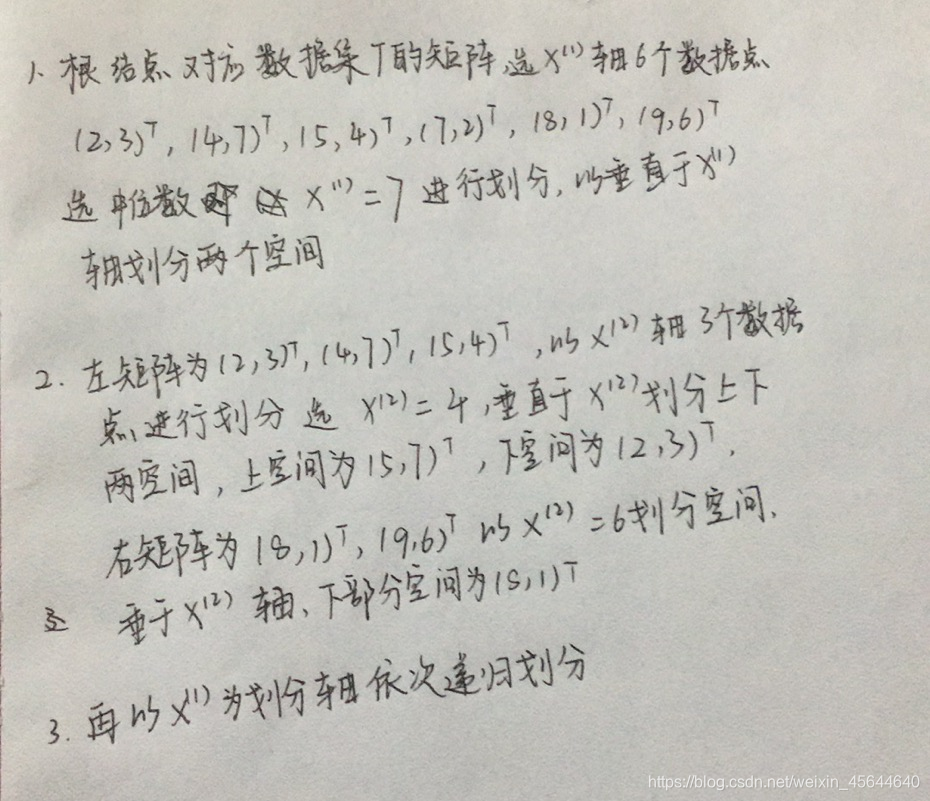 1. 根结点对应数据集T的矩阵,选X⁽¹⁾轴6个数据点
(2,3)ᵀ, (4,7)ᵀ, (5,4)ᵀ, (7,2)ᵀ, (8,1)ᵀ, (9,6)ᵀ
选中位数 X⁽¹⁾=7 进行划分, 以垂直于X⁽¹⁾
轴划分两个空间
2. 左矩阵为(2,3)ᵀ, (4,7)ᵀ, (5,4)ᵀ, 以X⁽²⁾轴3个数据
点,进行划分 选 X⁽²⁾=4,垂直于X⁽²⁾划分上下
两空间, 上空间为(5,7)ᵀ, 下空间为(2,3)ᵀ.
右矩阵为(8,1)ᵀ, (9,6)ᵀ 以X⁽²⁾=6划分空间.
垂于X⁽²⁾轴、下部分空间为(8,1)ᵀ
3. 再以X⁽¹⁾为划分轴依次递归划分
https://blog.csdn.net/weixin_45644640